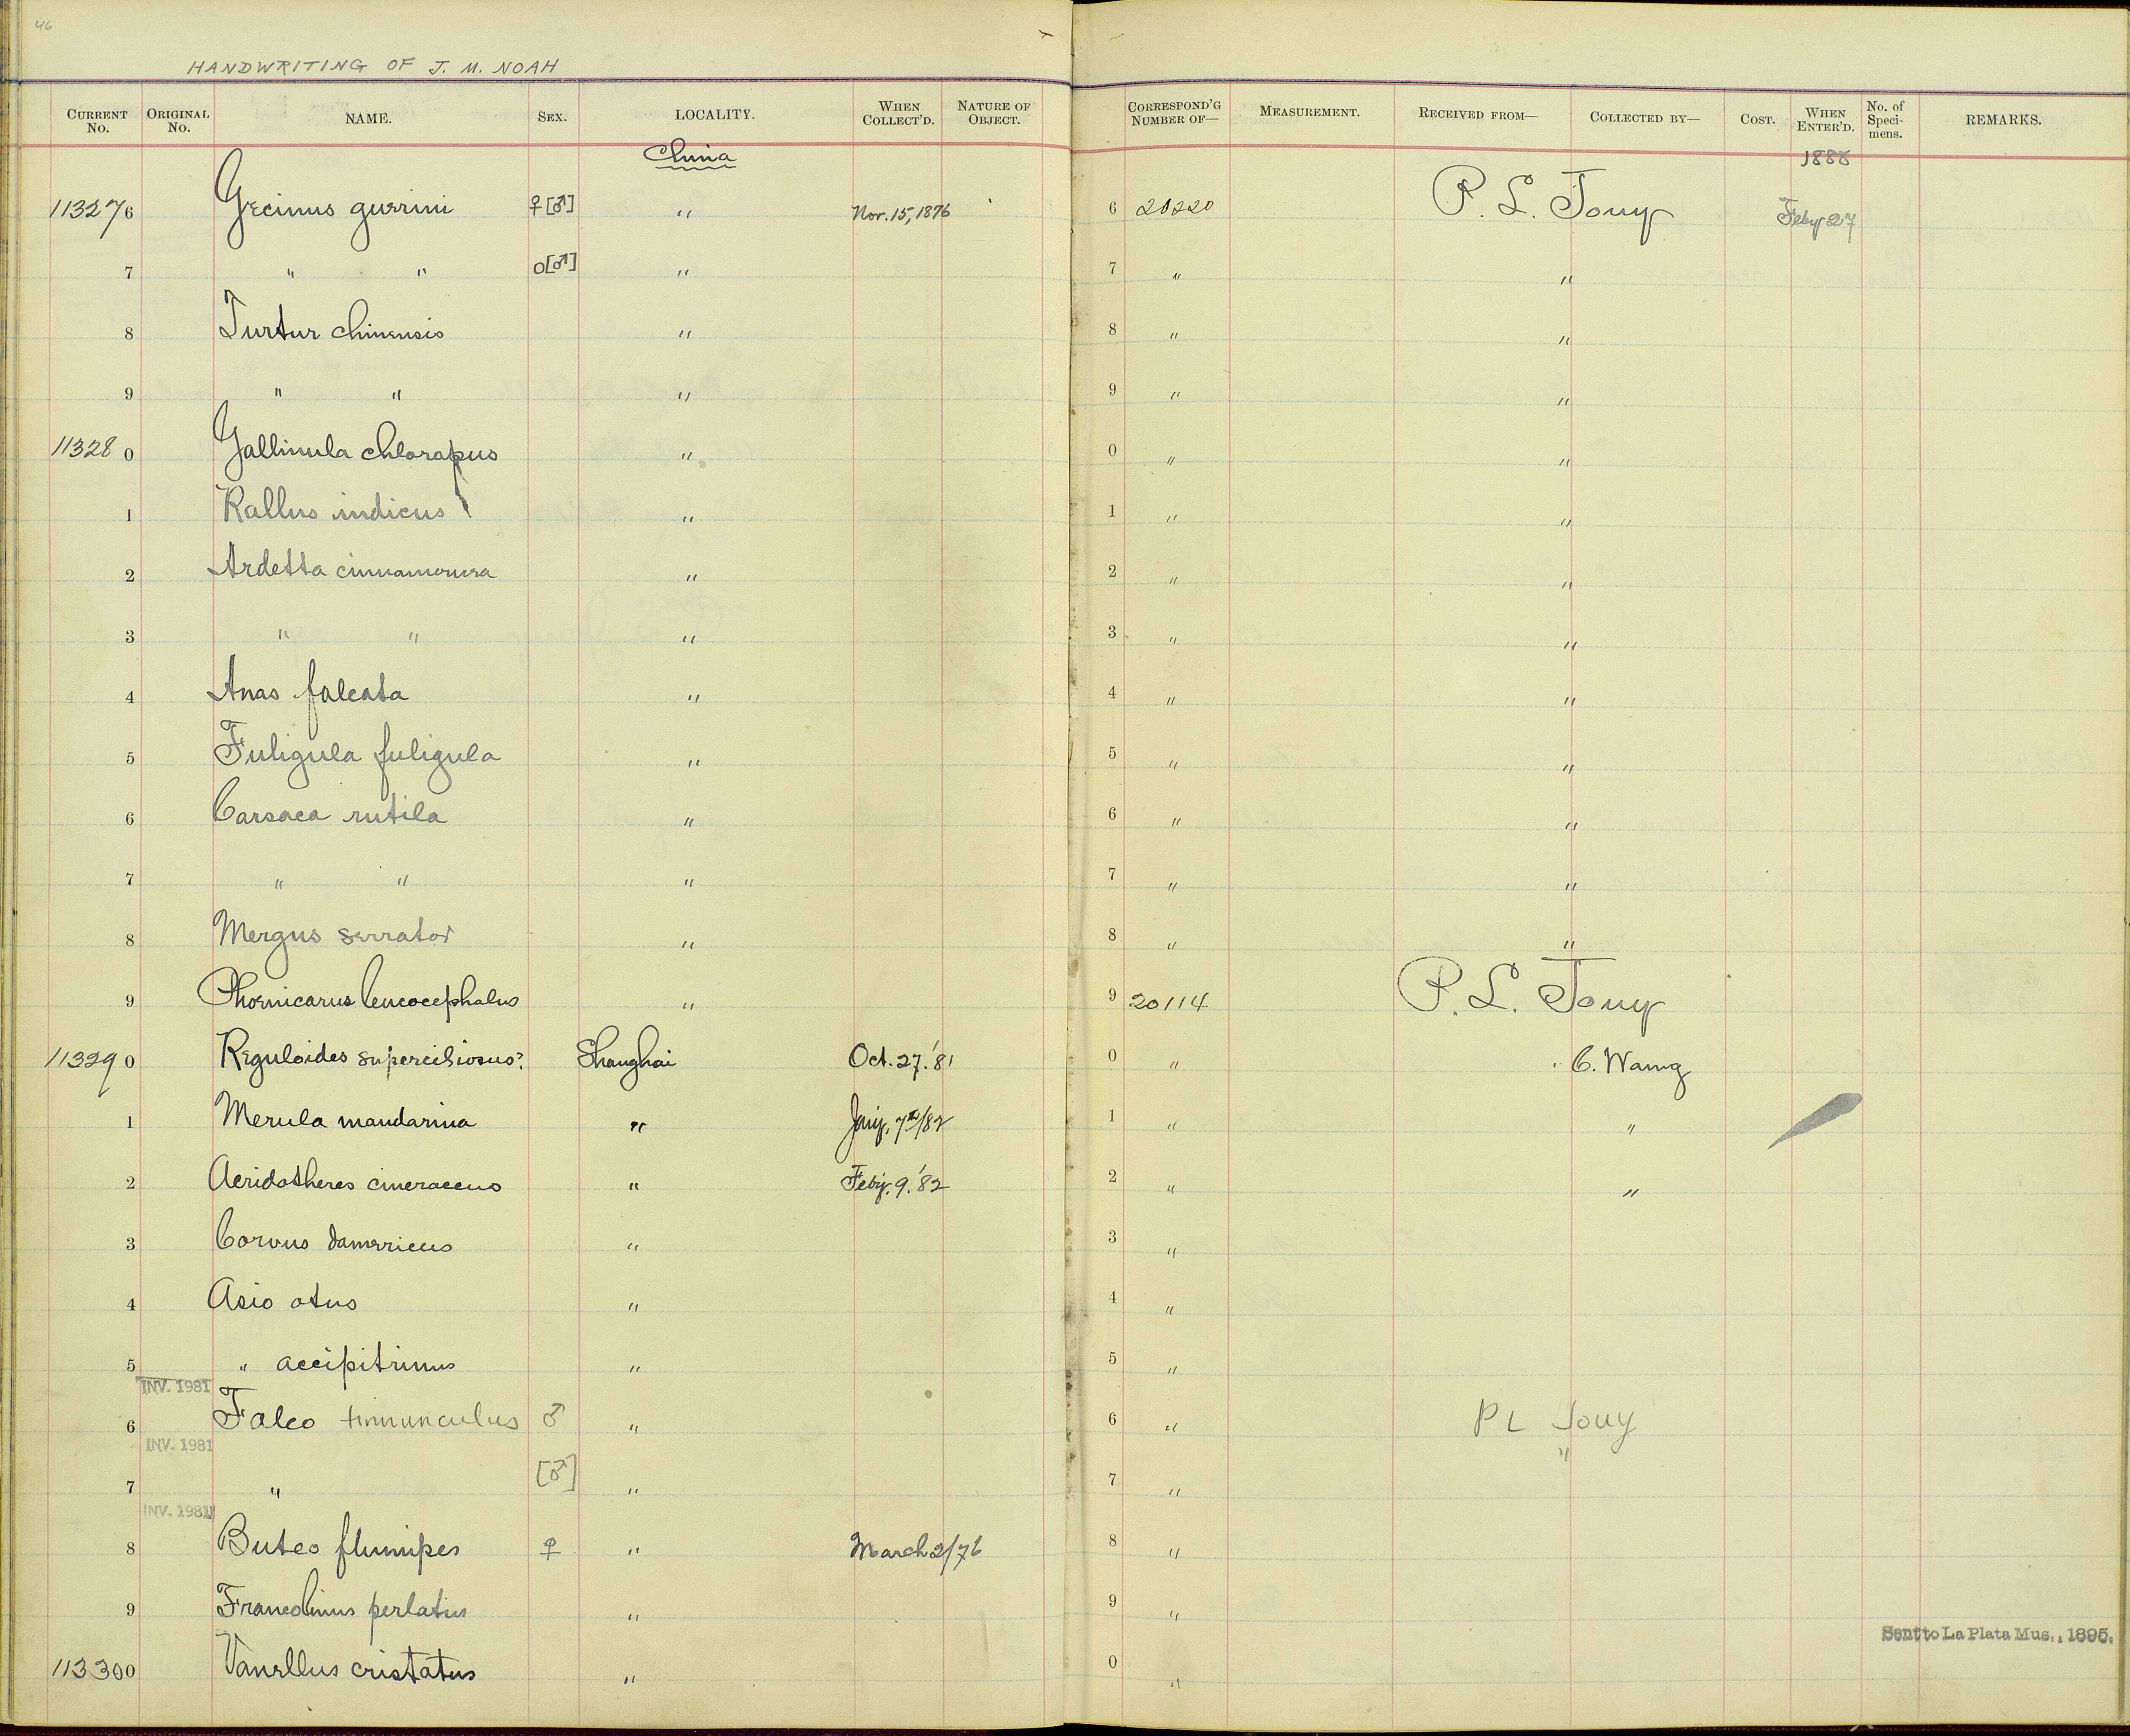 46
HANDWRITING OF J. M. NOAH
CURRENT No. ORIGINAL No. NAME. SEX. LOCALITY. WHEN COLLECT'D. NATURE OF OBJECT. CORRESPOND'G NUMBER OF— MEASUREMENT. RECEIVED FROM— COLLECTED BY— COST. WHEN ENTER'D. No. of Speci-mens. REMARKS.
China 1888
113276 Gecinus guerini ♀[♂] " Nov. 15, 1876 6 20220 P. L. Jouy Feby 27
7 " " o[♂] " 7 " "
8 Turtur chinensis " 8 " "
9 " " " 9 " "
113280 Gallinula chloropus " 0 " "
1 Rallus indicus " 1 " "
2 Ardetta cinnamomea " 2 " "
3 " " " 3 " "
4 Anas falcata " 4 " "
5 Fuligula fuligula " 5 " "
6 Casarca rutila " 6 " "
7 " " " 7 " "
8 Mergus serrator " 8 " "
9 leucocephalus " 9 20114 P. L. Jouy
113290 Reguloides superciliosus? Shanghai Oct. 27. '81 0 " C. Wang
1 Merula mandarina " Jany. 7th/82 1 " "
2 Acridotheres cineraceus " Feby. 9. '82 2 " "
3 Corvus dauuricus " 3 "
4 Asio otus " 4 "
5 " accipitrinus " 5 "
INV. 1981
6 Falco tinnunculus ♂ " 6 " P L Jouy
INV. 1981
7 " [♂] " 7 " "
INV. 1981
8 Buteo plumipes ♀ " March 2/76 8 "
9 Francolinus perlatus " 9 "
Sent to La Plata Mus., 1895.
113300 Vanellus cristatus " 0 "